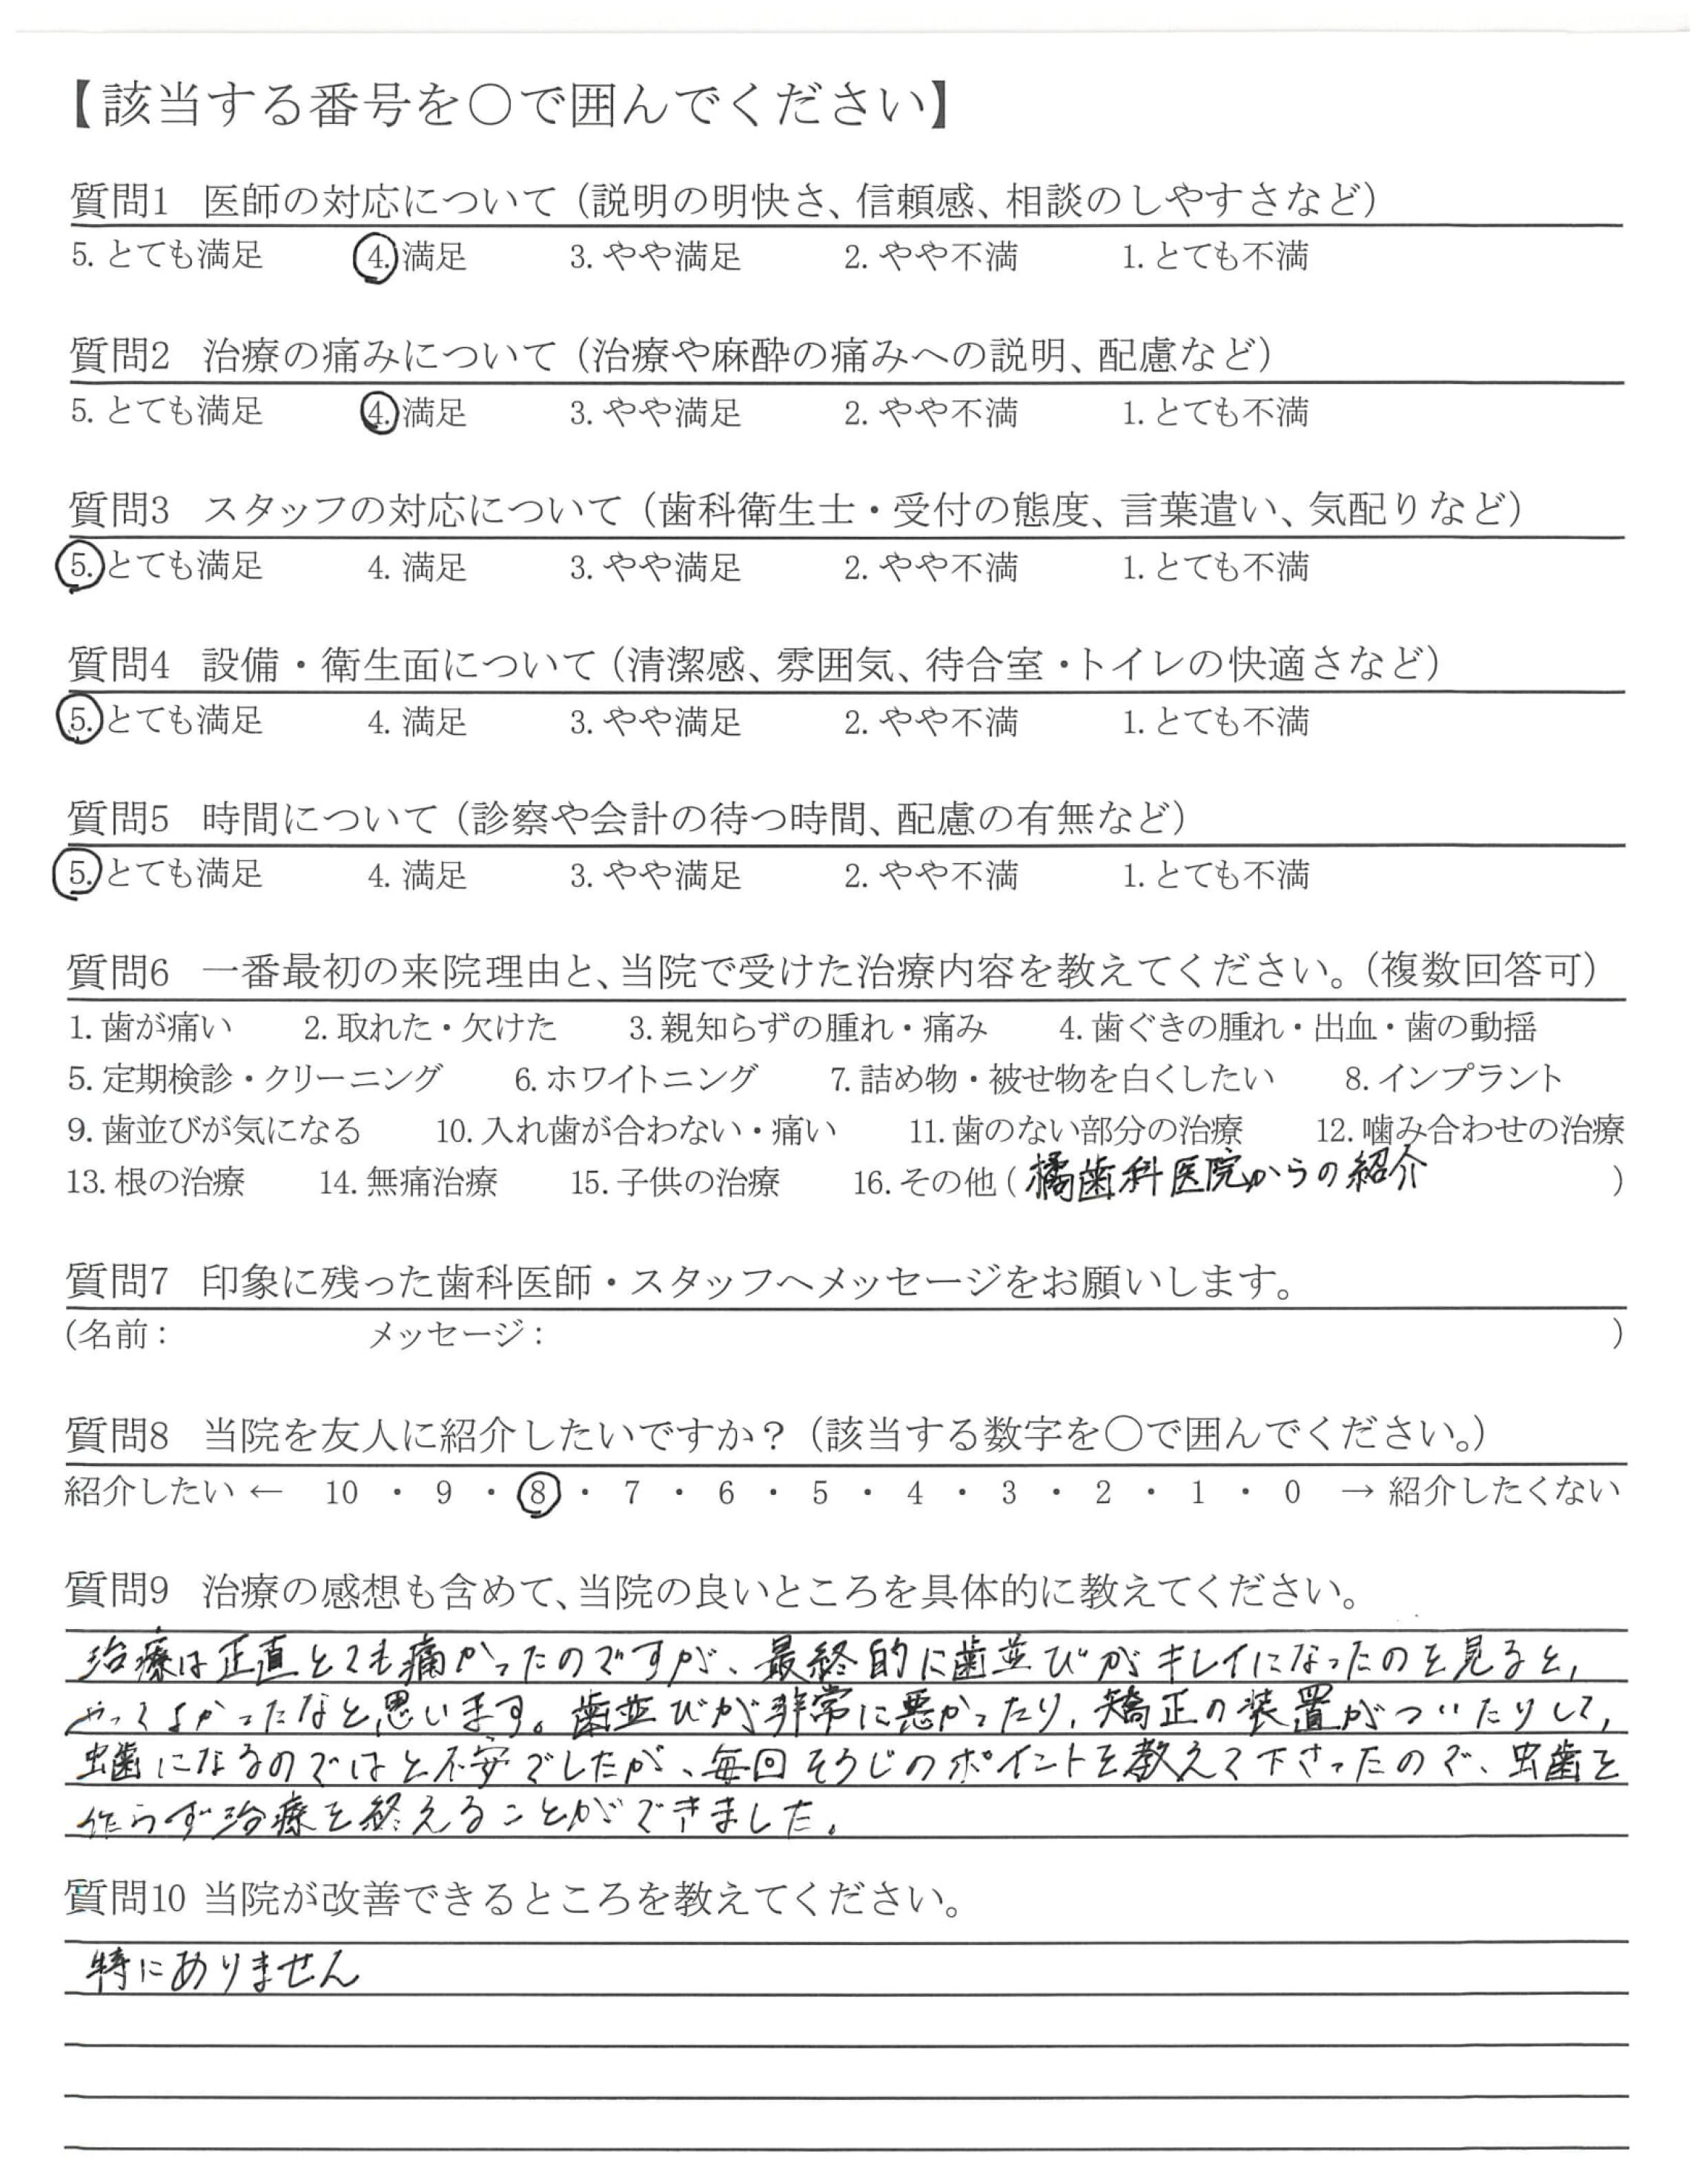 【該当する番号を○で囲んでください】
質問1 医師の対応について（説明の明快さ、信頼感、相談のしやすさなど）
5. とても満足 4. 満足 3. やや満足 2. やや不満 1. とても不満
質問2 治療の痛みについて（治療や麻酔の痛みへの説明、配慮など）
5. とても満足 4. 満足 3. やや満足 2. やや不満 1. とても不満
質問3 スタッフの対応について（歯科衛生士・受付の態度、言葉遣い、気配りなど）
5. とても満足 4. 満足 3. やや満足 2. やや不満 1. とても不満
質問4 設備・衛生面について（清潔感、雰囲気、待合室・トイレの快適さなど）
5. とても満足 4. 満足 3. やや満足 2. やや不満 1. とても不満
質問5 時間について（診察や会計の待つ時間、配慮の有無など）
5. とても満足 4. 満足 3. やや満足 2. やや不満 1. とても不満
質問6 一番最初の来院理由と、当院で受けた治療内容を教えてください。（複数回答可）
1. 歯が痛い 2. 取れた・欠けた 3. 親知らずの腫れ・痛み 4. 歯ぐきの腫れ・出血・歯の動揺
5. 定期検診・クリーニング 6. ホワイトニング 7. 詰め物・被せ物を白くしたい 8. インプラント
9. 歯並びが気になる 10. 入れ歯が合わない・痛い 11. 歯のない部分の治療 12. 噛み合わせの治療
13. 根の治療 14. 無痛治療 15. 子供の治療 16. その他（橘歯科医院からの紹介）
質問7 印象に残った歯科医師・スタッフへメッセージをお願いします。
（名前： メッセージ： ）
質問8 当院を友人に紹介したいですか？（該当する数字を○で囲んでください。）
紹介したい ← 10 ・ 9 ・ 8 ・ 7 ・ 6 ・ 5 ・ 4 ・ 3 ・ 2 ・ 1 ・ 0 → 紹介したくない
質問9 治療の感想も含めて、当院の良いところを具体的に教えてください。
治療は正直とても痛かったのですが、最終的に歯並びがキレイになったのを見ると、
やってよかったなと思います。歯並びが非常に悪かったり、矯正の装置がついたりして、
虫歯になるのではと不安でしたが、毎回そうじのポイントを教えて下さったので、虫歯を
作らず治療を終えることができました。
質問10 当院が改善できるところを教えてください。
特にありません